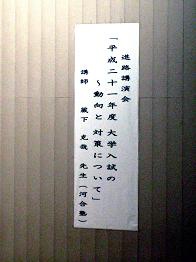 進路講演会
「平成二十一年度 大学入試の
～動向と対策について」
講師 藪下 克哉 先生(河合塾)